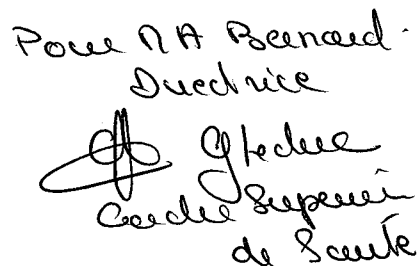 Pour M A Bernard.
Directrice
G Leduc
Cadre Superieur
de Sante